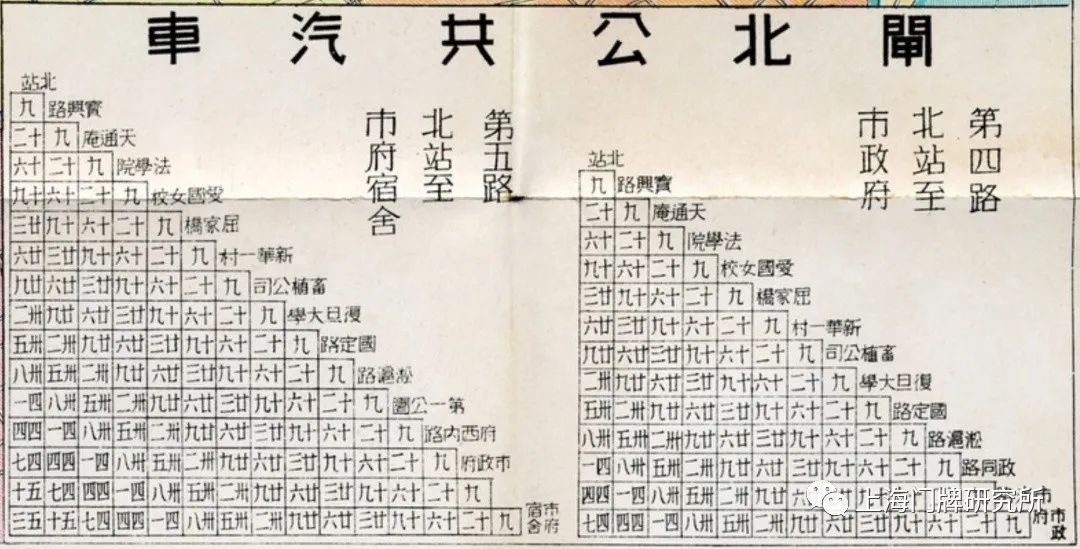 閘北公共汽車
第四路
北站至
市政府
北站
寶興路 九
天通庵 九 十二
法學院 九 十二 十六
愛國女校 九 十二 十六 十九
屈家橋 九 十二 十六 十九 廿三
新華一村 九 十二 十六 十九 廿三 廿六
畜植公司 九 十二 十六 十九 廿三 廿六 廿九
復旦大學 九 十二 十六 十九 廿三 廿六 廿九 卅二
國定路 九 十二 十六 十九 廿三 廿六 廿九 卅二 卅五
淞滬路 九 十二 十六 十九 廿三 廿六 廿九 卅二 卅五 卅八
政同路 九 十二 十六 十九 廿三 廿六 廿九 卅二 卅五 卅八 四一
廿九 卅二 卅五 卅八 四一 四四
市政府 九 十二 十六 十九 廿三 廿六 廿九 卅二 卅五 卅八 四一 四四 四七
第五路
北站至
市府宿舍
北站
寶興路 九
天通庵 九 十二
法學院 九 十二 十六
愛國女校 九 十二 十六 十九
屈家橋 九 十二 十六 十九 廿三
新華一村 九 十二 十六 十九 廿三 廿六
畜植公司 九 十二 十六 十九 廿三 廿六 廿九
復旦大學 九 十二 十六 十九 廿三 廿六 廿九 卅二
國定路 九 十二 十六 十九 廿三 廿六 廿九 卅二 卅五
淞滬路 九 十二 十六 十九 廿三 廿六 廿九 卅二 卅五 卅八
第一公園 九 十二 十六 十九 廿三 廿六 廿九 卅二 卅五 卅八 四一
府西內路 九 十二 十六 十九 廿三 廿六 廿九 卅二 卅五 卅八 四一 四四
市政府 九 十二 十六 十九 廿三 廿六 廿九 卅二 卅五 卅八 四一 四四 四七
九 十二 十六 十九 廿三 廿六 廿九 卅二 卅五 卅八 四一 四四 四七 五十
市府宿舍 九 十二 十六 十九 廿三 廿六 廿九 卅二 卅五 卅八 四一 四四 四七 五十 五三
上海门牌研究所